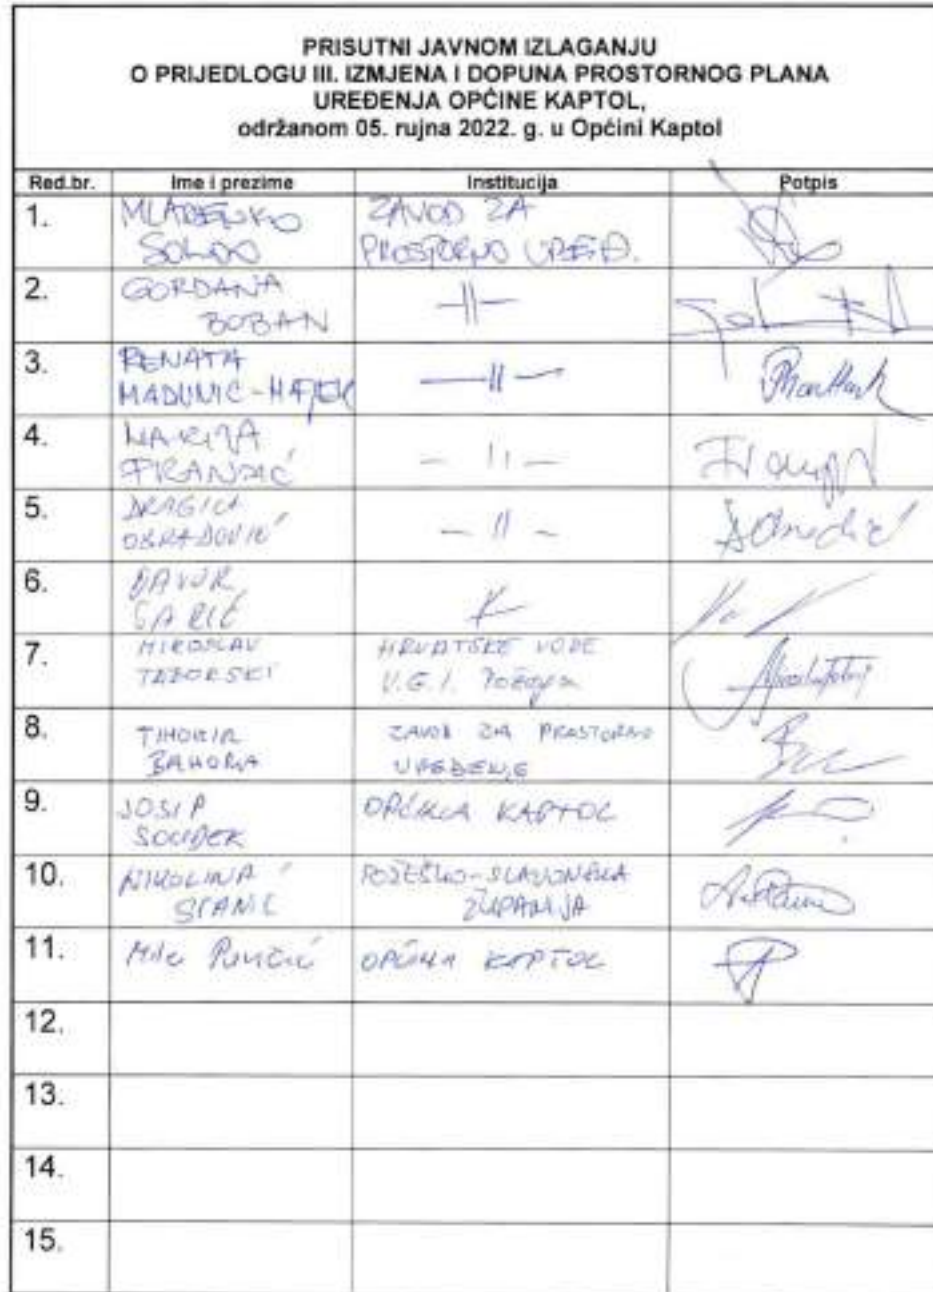 PRISUTNI JAVNOM IZLAGANJU
O PRIJEDLOGU III. IZMJENA I DOPUNA PROSTORNOG PLANA
UREĐENJA OPĆINE KAPTOL,
održanom 05. rujna 2022. g. u Općini Kaptol
Red.br. Ime i prezime Institucija Potpis
1. MLADENKO ZAVOD ZA
SOLDO PROSTORNO UREĐ.
2. GORDANA —||—
BOBAN
3. RENATA —||—
MADUNIĆ-HAJEK
4. MARIJA —||—
FRANDIĆ
5. DRAGICA —||—
OBRADOVIĆ
6. DAVOR
ŠARIĆ
7. MIROSLAV HRVATSKE VODE
TABORSKI V.G.I. Požega
8. TIHOMIR ZAVOD ZA PROSTORNO
BAHORA UREĐENJE
9. JOSIP OPĆINA KAPTOL
SOUDEK
10. NIKOLINA POŽEŠKO-SLAVONSKA
STANIĆ ŽUPANIJA
11. Mile Pavičić OPĆINA KAPTOL
12.
13.
14.
15.